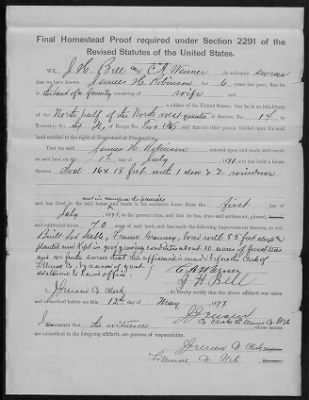 Final Homestead Proof required under Section 2291 of the
Revised Statutes of the United States.
WE, J. H. Bell and C. A. Werner do solemnly swear
that we have known James H. Robinson for 6 years last past; that he
is the head of a family consisting of wife
a citizen of the United States; that he is an inhabitant
of the North half of the North west quarter of Section No. 14 in
Township No. Six of Range No. Two and that no other person resided upon the said
land entitled to the right of Homestead or Pre-emption.
That the said James H. Robinson entered upon and made settlement
on said land on the 1st day of July, 1871, and has built a house
thereon Sod 16 x 18 feet with 1 door & 2 windows
and has lived in the said house and made it his exclusive home from the first day of
July, 1871, to the present time, and that he has, since said settlement, plowed,
and cultivated about 70 acres of said land, and has made the following improvements thereon, to wit:
Built Sod Stable, Frame Granary, bored well 85 feet deep &
planted and kept in good growing condition about 10 acres of forest trees
and we further swear that this affidavit is made before the Clerk of
by reason of great
distance to Land office.
C. A. Werner
J. H. Bell
I, Clerk do hereby certify that the above affidavit was taken
and subscribed before me this 12th day of May 1877
Clerk
I certify that the witnesses whose names
are subscribed to the foregoing affidavit, are persons of respectability.
Clerk